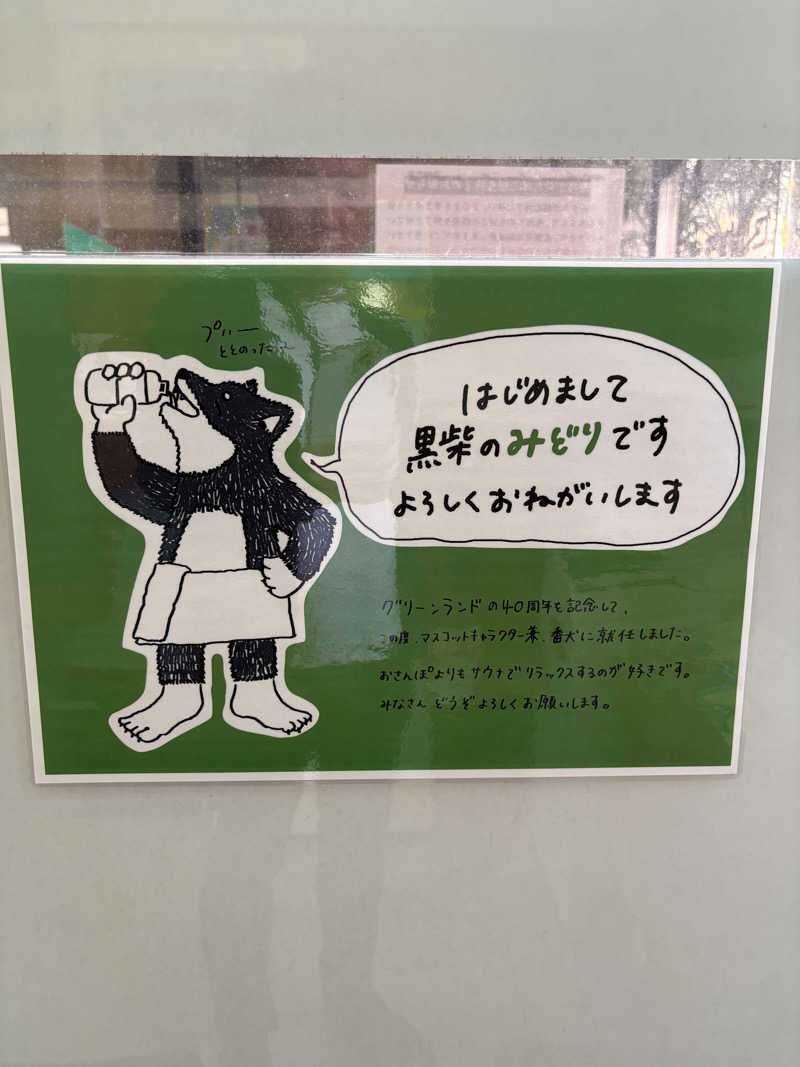 プハー
ととのった〜
はじめまして
黒柴のみどりです
よろしくおねがいします
グリーンランドの40周年を記念して、
この度、マスコットキャラクター兼、番犬に就任しました。
おさんぽよりもサウナでリラックスするのが好きです。
みなさんどうぞよろしくお願いします。